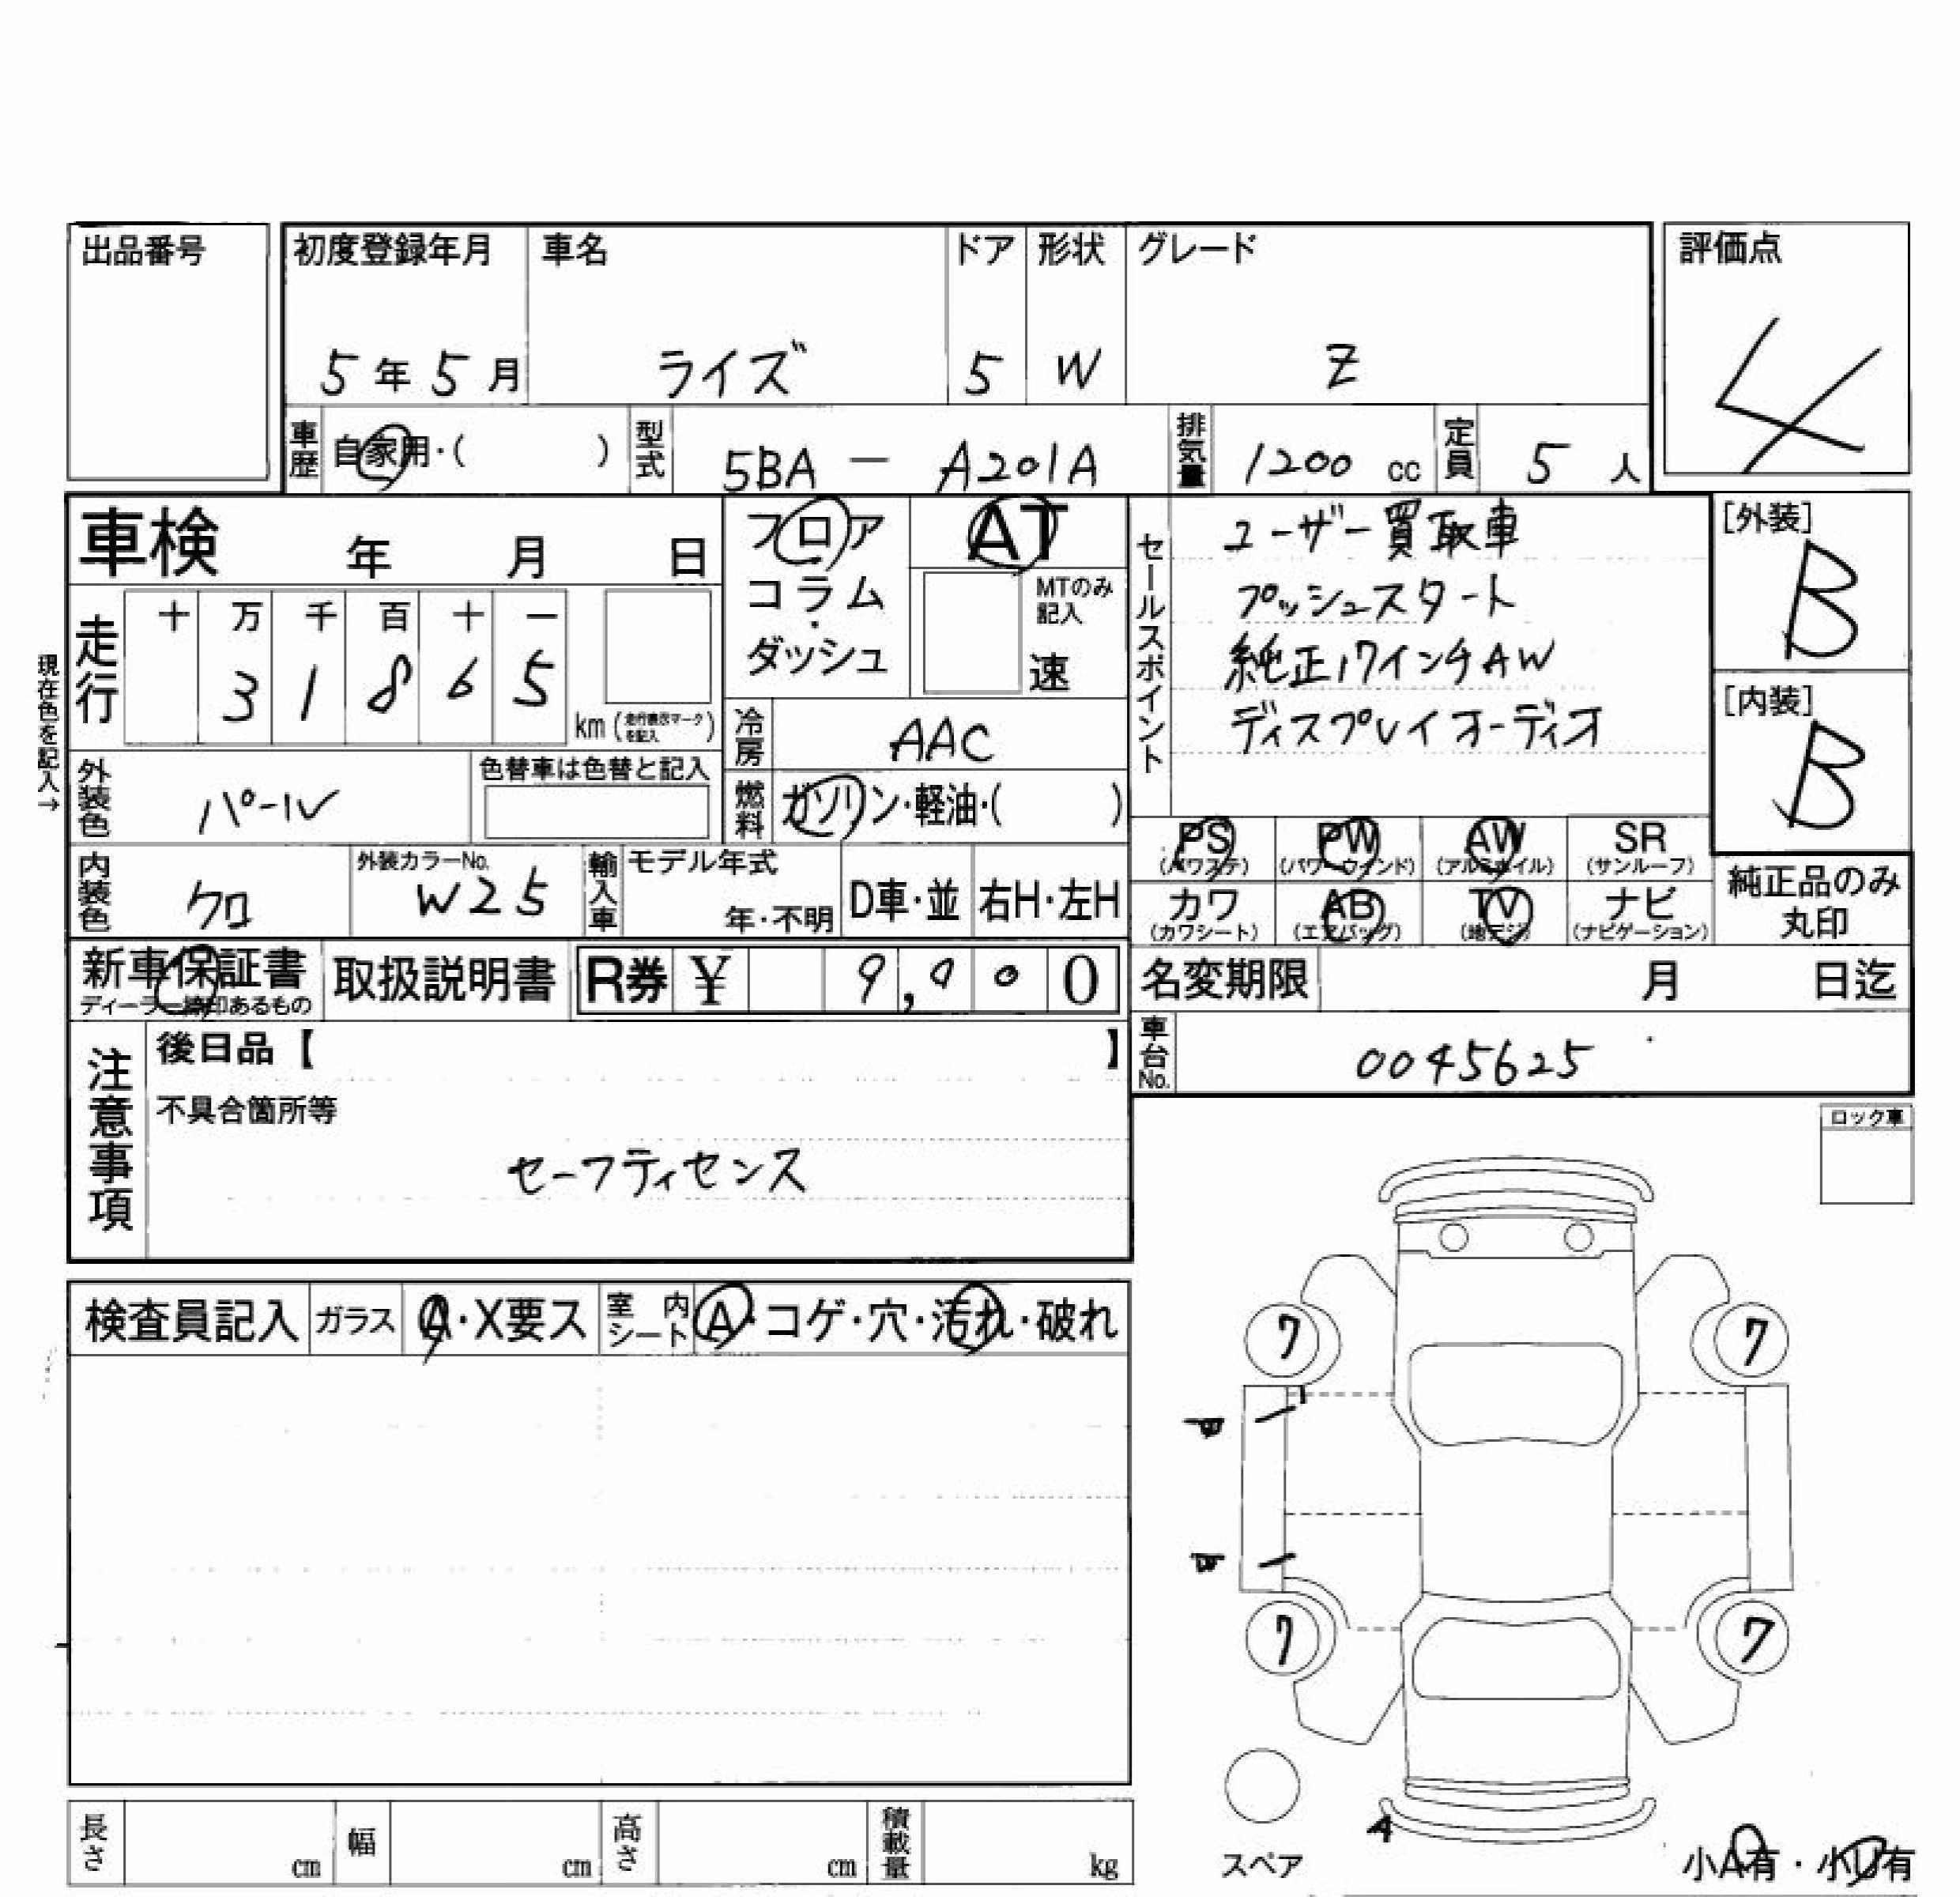 出品番号
初度登録年月
5年5月
車名
ライズ
ドア
5
形状
W
グレード
Z
評価点
4
車歴
自家用・( )
型式
5BA - A201A
排気量
1200 cc
定員
5 人
車検 年 月 日
フロア
コラム
・
ダッシュ
AT
MTのみ
記入
速
セールスポイント
ユーザー買取車
プッシュスタート
純正17インチAW
ディスプレイオーディオ
[外装]
B
[内装]
B
現在色を記入→
走行
十 万 千 百 十 一
3 1 8 6 5
km (走行表示マークを記入)
冷房
AAC
燃料
ガソリン・軽油・( )
外装色
パール
色替車は色替と記入
内装色
クロ
外装カラーNo.
W25
輸入車
モデル年式
年・不明
D車・並
右H・左H
PS PW AW SR
(パワステ) (パワーウィンド) (アルミホイル) (サンルーフ)
カワ AB TV ナビ
(カワシート) (エアバッグ) (地デジ) (ナビゲーション)
純正品のみ
丸印
新車保証書
ディーラー締印あるもの
取扱説明書
R券 ¥ 9,900
名変期限 月 日迄
車台No.
0045625
注意事項
後日品【 】
不具合箇所等
セーフティセンス
ロック車
検査員記入
ガラス
A・X要ス
室内
シート
A・コゲ・穴・汚れ・破れ
7 7
7 7
A
スペア
小A有・小U有
長さ cm
幅 cm
高さ cm
積載量 kg